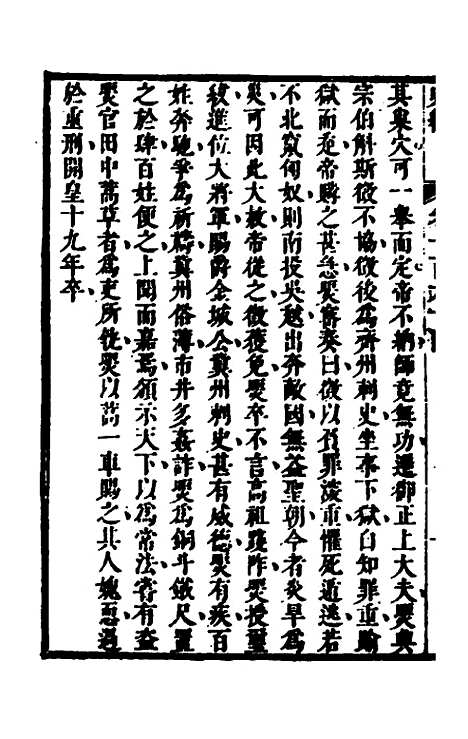 其巢穴可一舉而定帝不納師竟無功遷御正上大夫煚與
宗伯斛斯徵不協徵後爲齊州刺史坐事下獄自知罪重踰
獄而走帝購之甚急煚密奏曰徵以負罪深重懼死遁逃若
不北竄匈奴則南投吳越出奔敵國無益聖朝今者炎旱爲
災可因此大赦帝從之徵獲免煚卒不言高祖踐阼煚授璽
紱進位大將軍賜爵金城公冀州刺史甚有威德煚有疾百
姓奔馳爭爲祈禱冀州俗薄市井多姦詐煚爲銅斗鐵尺置
之於肆百姓便之上聞而嘉焉頒示天下以爲常法嘗有盜
煚官田中蒿草者爲吏所執煚以蒿一車賜之其人媿恧過
於重刑開皇十九年卒